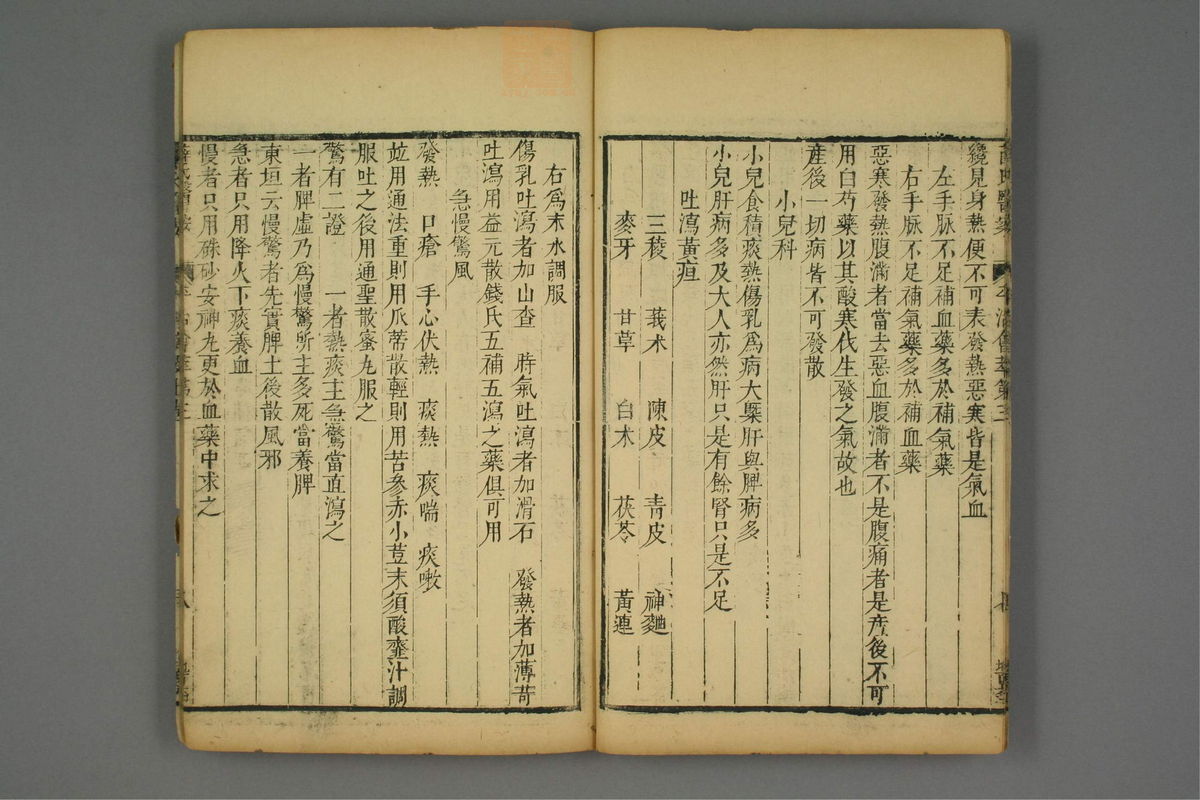 纔見身熱便不可表發熱惡寒皆是氣血
左手脉不足補血藥多於補氣藥
右手脉不足補氣藥多於補血藥
惡寒發熱腹滿者當去惡血腹滿者不是腹痛者是產後不可
用白芍藥以其酸寒伐生發之氣故也
產後一切病皆不可發散
小兒科
小兒食積痰熱傷乳爲病大槩肝與脾病多
小兒肝病多及大人亦然肝只是有餘腎只是不足
吐瀉黃疸
三稜 莪朮 陳皮 靑皮 神麯
麥牙 甘草 白朮 茯苓 黃連
右爲末水調服
傷乳吐瀉者加山查 時氣吐瀉者加滑石 發熱者加薄苛
吐瀉用益元散錢氏五補五瀉之藥俱可用
急慢驚風
發熱 口瘡 手心伏熱 痰熱 痰喘 痰嗽
竝用通法重則用瓜蒂散輕則用苦參赤小荳末須酸虀汁調
服吐之後用通聖散蜜丸服之
驚有二證 一者熱痰主急驚當直瀉之
一者脾虛乃爲慢驚所主多死當養脾
東垣云慢驚者先實脾土後散風邪
急者只用降火下痰養血
慢者只用硃砂安神丸更於血藥中求之